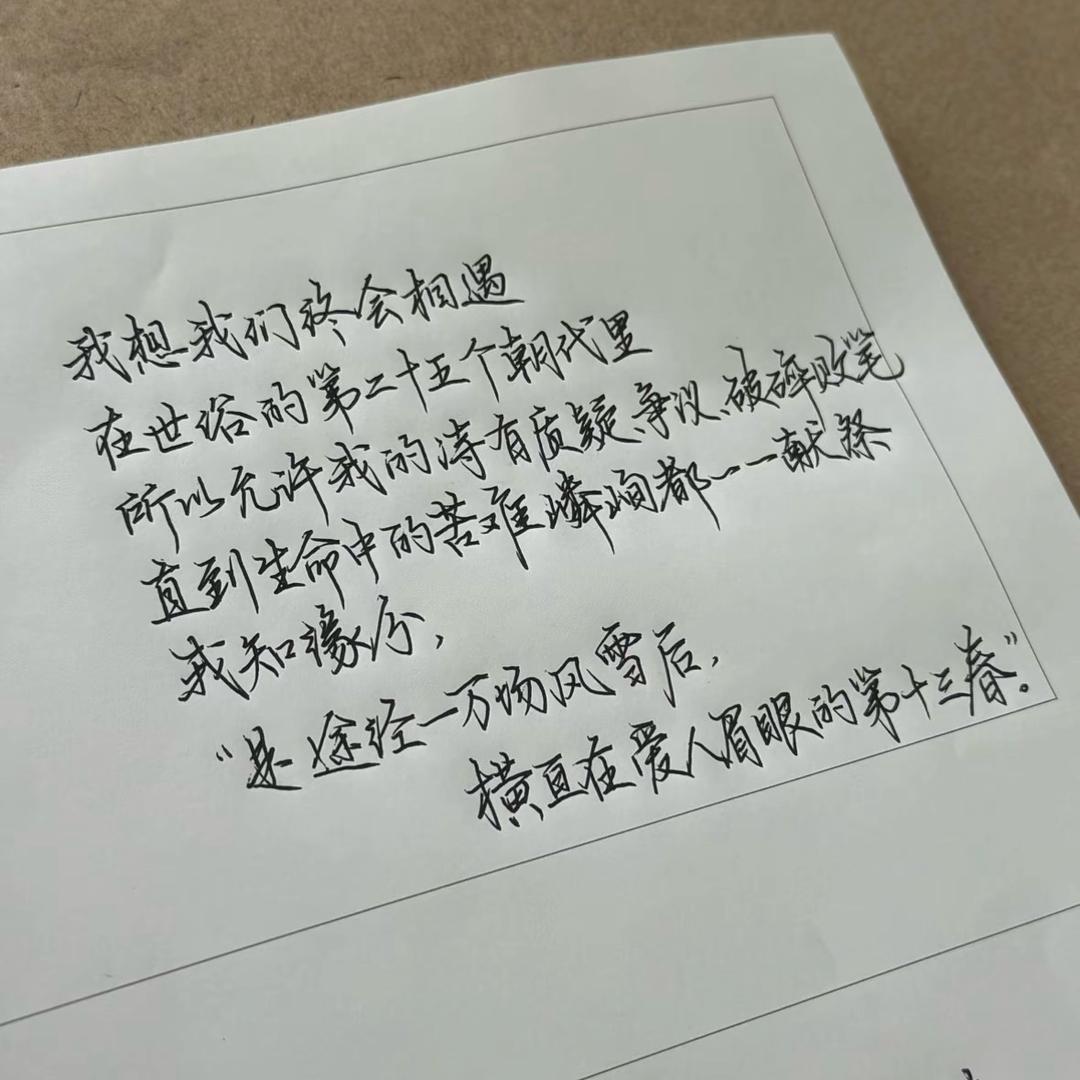 我想我们终会相遇
在世俗的第二十五个朝代里
所以允许我的诗有质疑、争议、破碎败笔
直到生命中的苦难嶙峋都一一献祭
我知缘分，
“是途经一万场风雪后，
横亘在爱人眉眼的第十三春”。